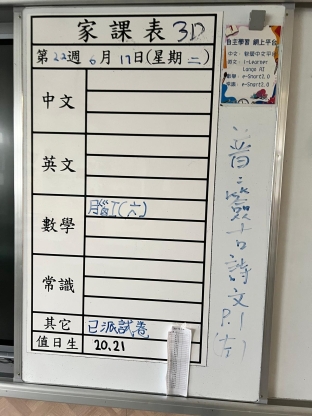 家課表 3D
第22週 6月17日(星期二)
中文
英文
數學
腦T(六)
常識
其它
已派試卷
值日生
20,21
自主學習 網上平台
中文:
英文: i-Learner
Lango AI
數學: e-Smart2.0
常識: e-Smart2.0
普
古詩文
P.1
(左)